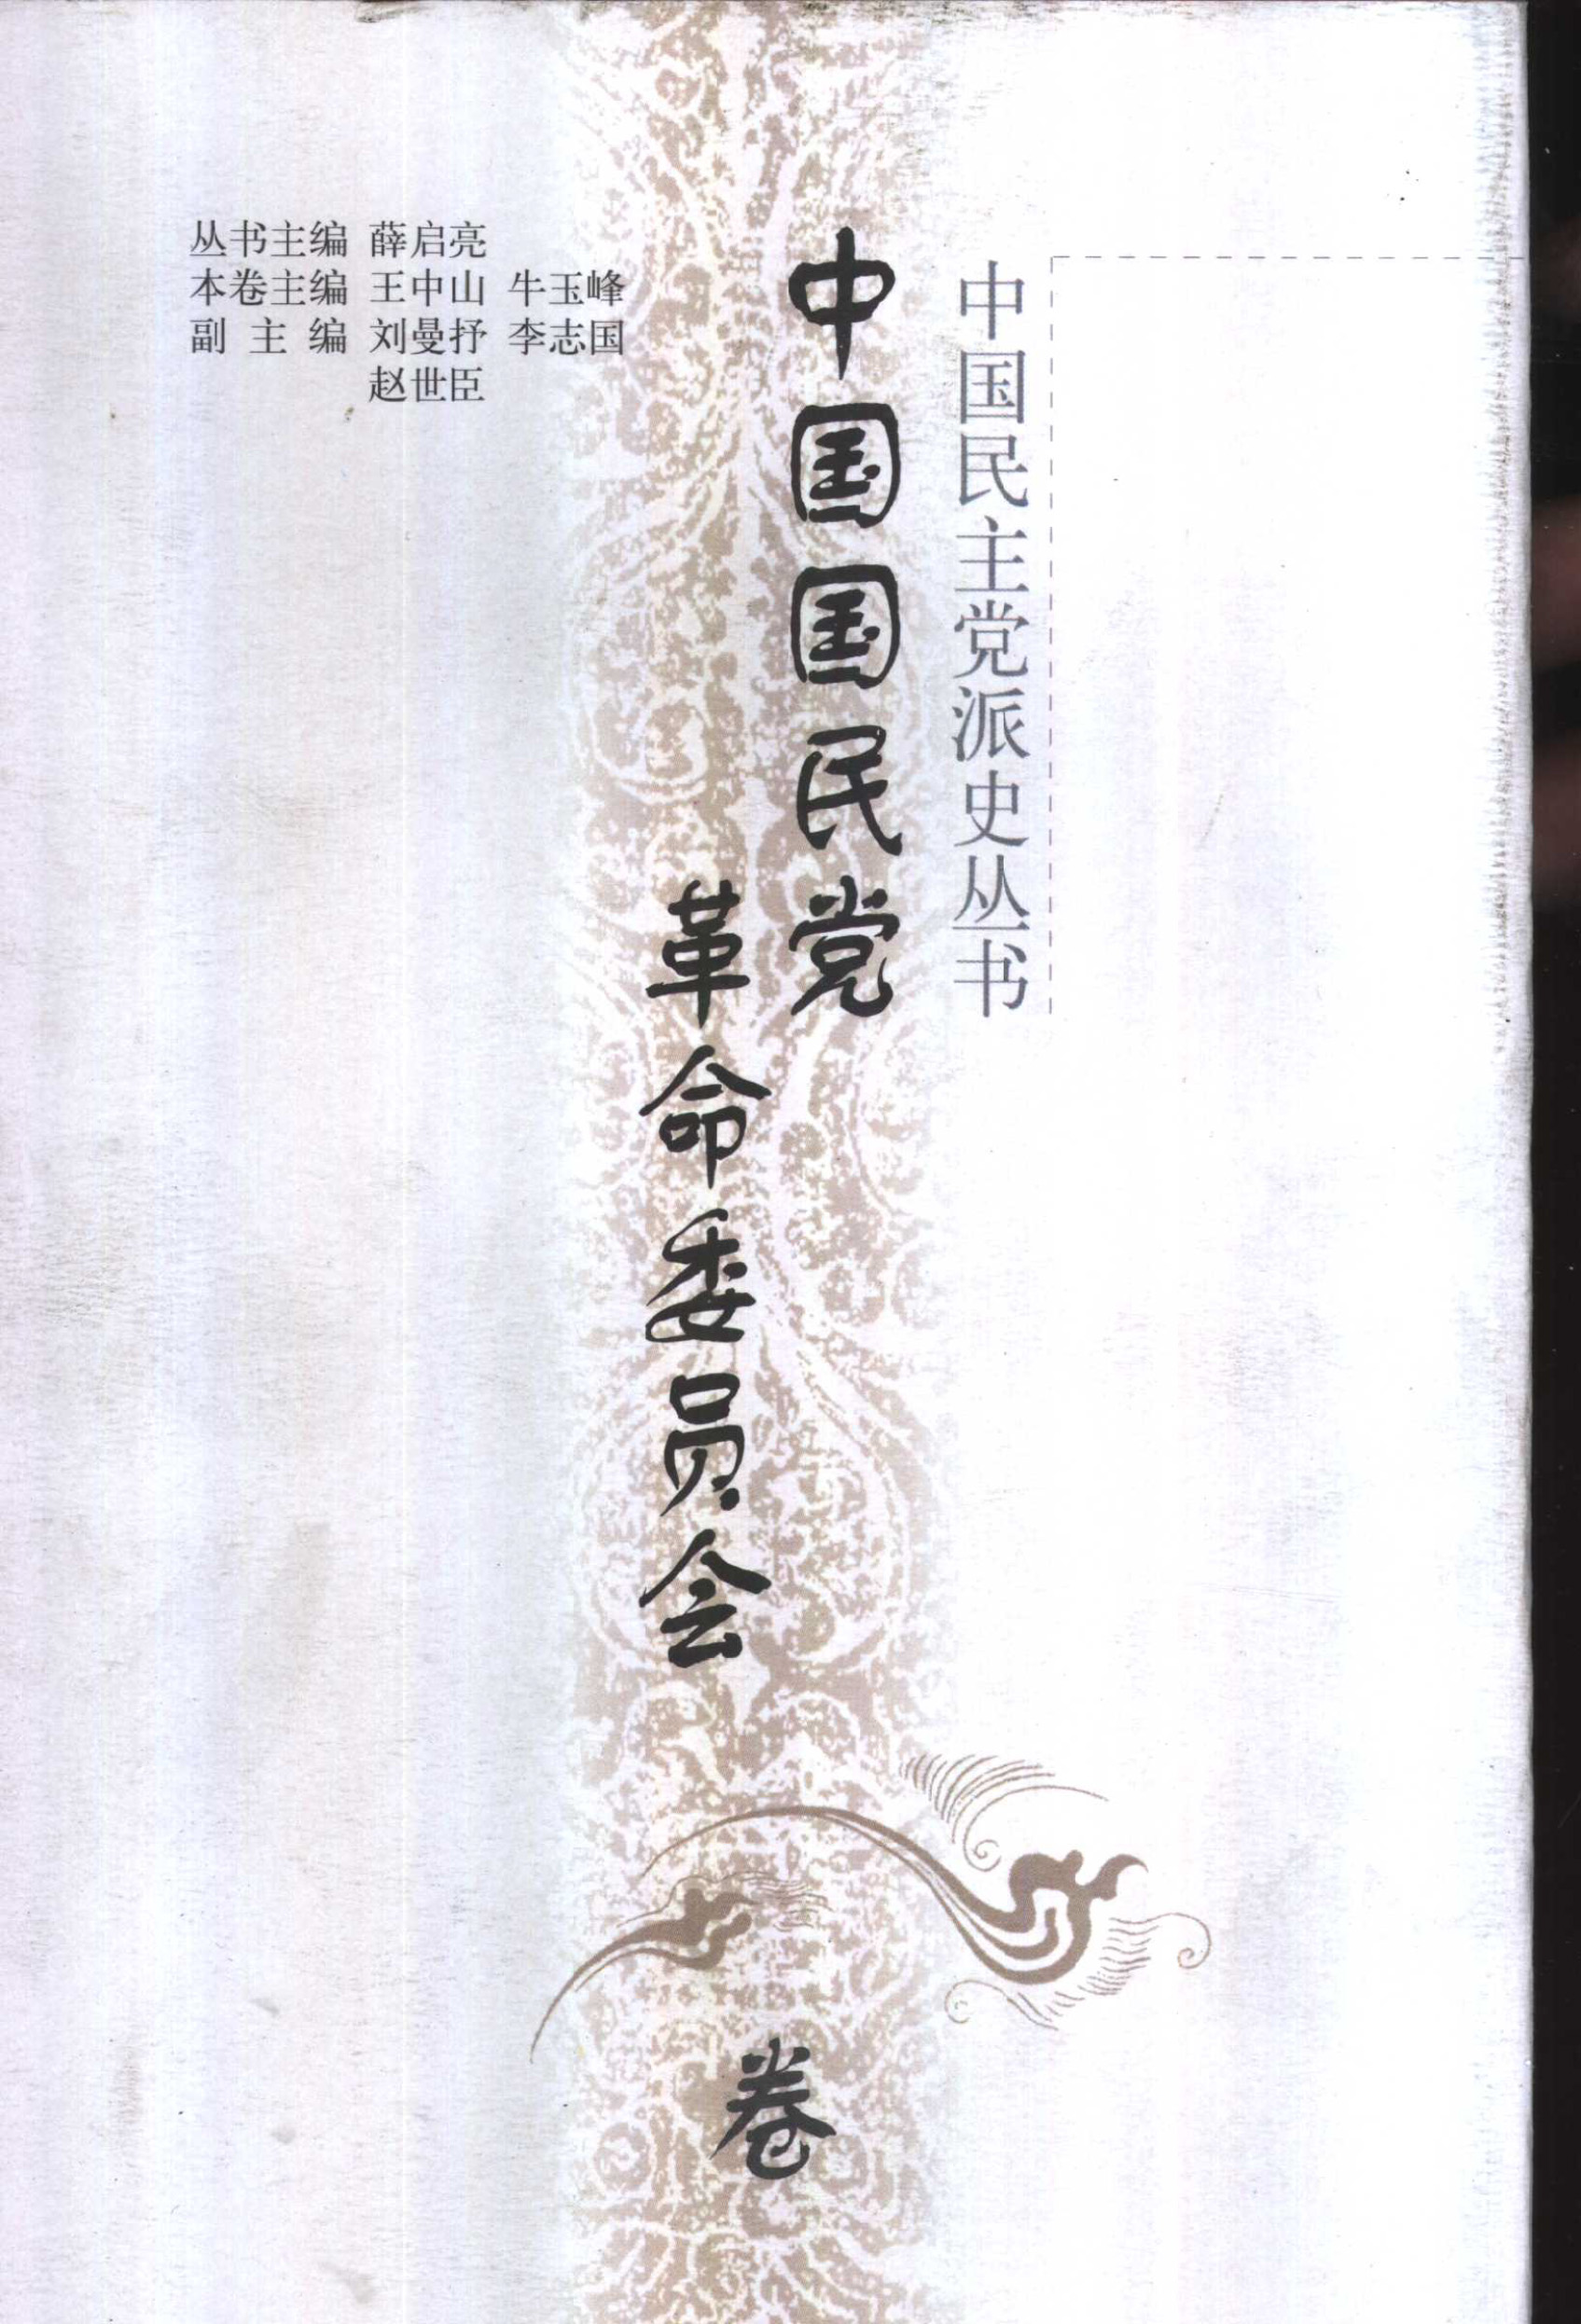 中国民主党派史丛书
中国国民党
革命委员会
卷
丛书主编 薛启亮
本卷主编 王中山 牛玉峰
副主编 刘曼抒 李志国
赵世臣